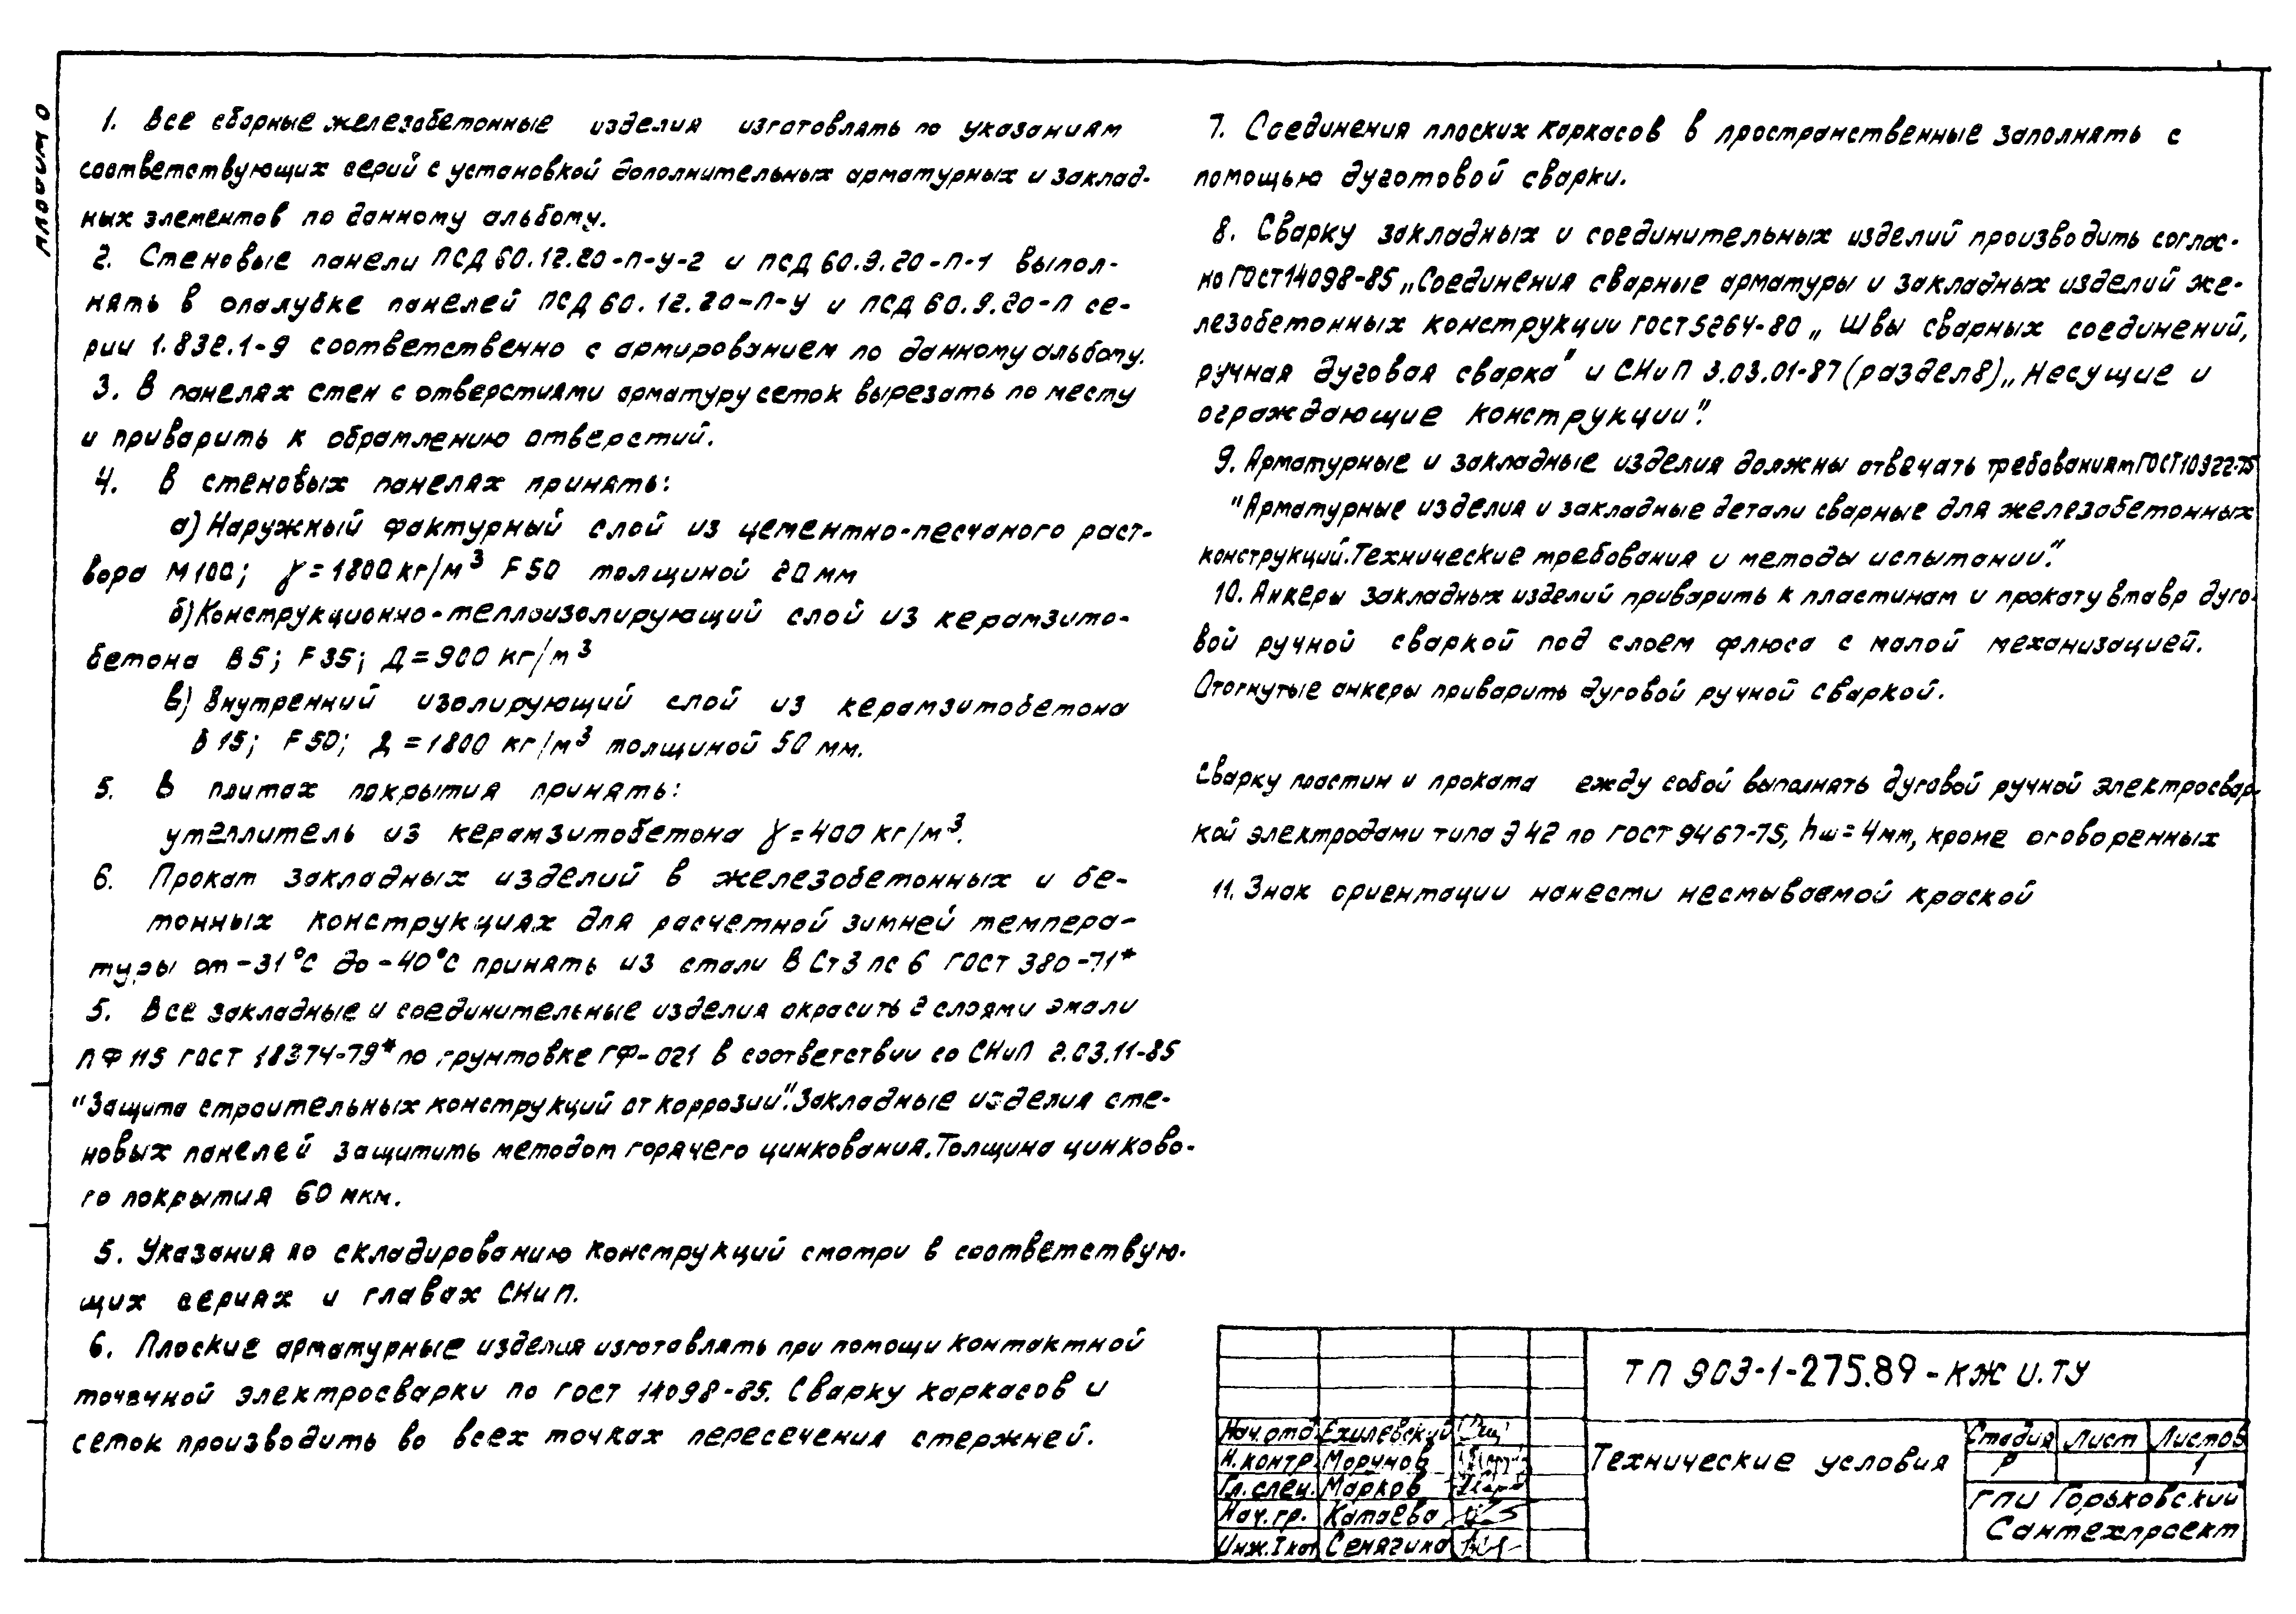 1. Все сборные железобетонные изделия изготовлять по указаниям
соответствующих серий с установкой дополнительных арматурных и заклад-
ных элементов по данному альбому.
2. Стеновые панели ПСД 60.12.20-П-У-2 и ПСД 60.9.20-П-1 выпол-
нять в опалубке панелей ПСД 60.12.20-П-У и ПСД 60.9.20-П се-
рии 1.832.1-9 соответственно с армированием по данному альбому.
3. В панелях стен с отверстиями арматуру сеток вырезать по месту
и приварить к обрамлению отверстий.
4. В стеновых панелях принять:
а) Наружный фактурный слой из цементно-песчаного раст-
вора М100; γ=1800 кг/м³ F50 толщиной 20 мм
б) Конструкционно-теплоизолирующий слой из керамзито-
бетона В5; F35; Д=900 кг/м³
в) Внутренний изолирующий слой из керамзитобетона
В15; F50; Д=1800 кг/м³ толщиной 50 мм.
5. В плитах покрытия принять:
утеплитель из керамзитобетона γ=400 кг/м³.
6. Прокат закладных изделий в железобетонных и бе-
тонных конструкциях для расчетной зимней темпера-
туры от -31°С до -40°С принять из стали ВСт3пс6 ГОСТ 380-71*
5. Все закладные и соединительные изделия окрасить 2 слоями эмали
ПФ 115 ГОСТ 18374-79* по грунтовке ГФ-021 в соответствии со СНиП 2.03.11-85
"Защита строительных конструкций от коррозии". Закладные изделия сте-
новых панелей защитить методом горячего цинкования. Толщина цинково-
го покрытия 60 мкм.
5. Указания по складированию конструкций смотри в соответствую-
щих сериях и главах СНиП.
6. Плоские арматурные изделия изготавлять при помощи контактной
точечной электросварки по ГОСТ 14098-85. Сварку каркасов и
сеток производить во всех точках пересечения стержней.
7. Соединения плоских каркасов в пространственные заполнять с
помощью дуготовой сварки.
8. Сварку закладных и соединительных изделий производить соглас-
но ГОСТ 14098-85 „Соединения сварные арматуры и закладных изделий же-
лезобетонных конструкции ГОСТ 5264-80 „Швы сварных соединений,
ручная дуговая сварка" и СНиП 3.03.01-87 (раздел 8) „Несущие и
ограждающие конструкции".
9. Арматурные и закладные изделия должны отвечать требованиям ГОСТ 10922-75
"Арматурные изделия и закладные детали сварные для железобетонных
конструкций. Технические требования и методы испытании".
10. Анкеры закладных изделий приварить к пластинам и прокату втавр дуго-
вой ручной сваркой под слоем флюса с малой механизацией.
Отогнутые анкеры приварить дуговой ручной сваркой.
Сварку пластин и проката ежду собой выполнять дуговой ручной электросвар-
кой электродами типа Э42 по ГОСТ 9467-75, hш=4мм, кроме оговоренных
11. Знак ориентации нанести несмываемой краской
ТП 903-1-275.89-КЖ И.ТУ
Нач.отд. Ехилевский
Н.контр. Морунов
Гл.спец. Марков
Нач.гр. Катаева
Инж.I кат Сенягина
Технические условия
Стадия Лист Листов
Р 1
ГПИ Горьковский
Сантехпроект